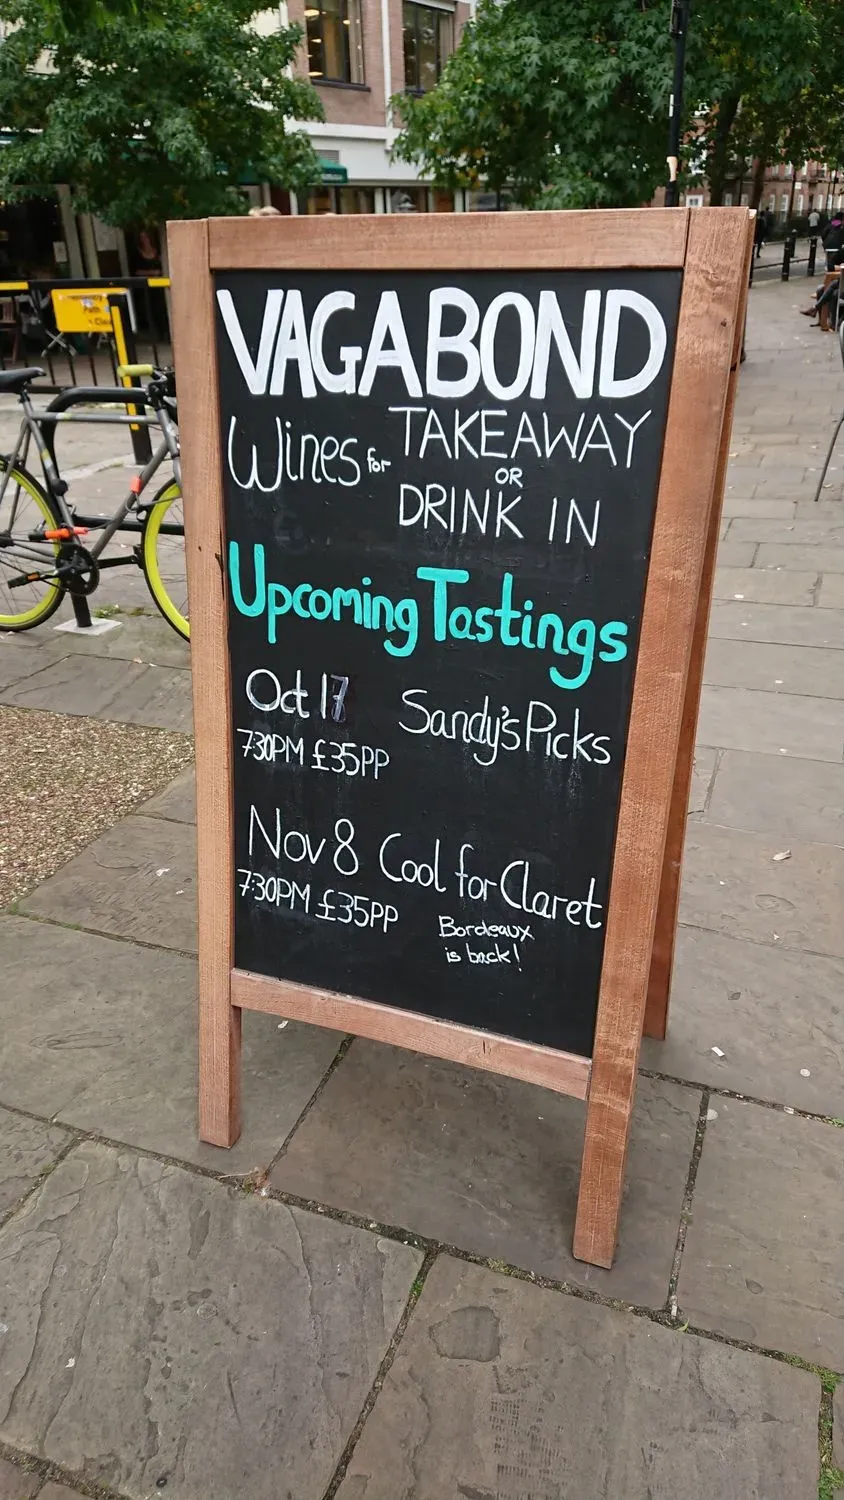 VAGABOND
Wines for TAKEAWAY
OR
DRINK IN
Upcoming Tastings
Oct 17 Sandy's Picks
7:30PM £35PP
Nov 8 Cool for Claret
7:30PM £35PP
Bordeaux
is back!